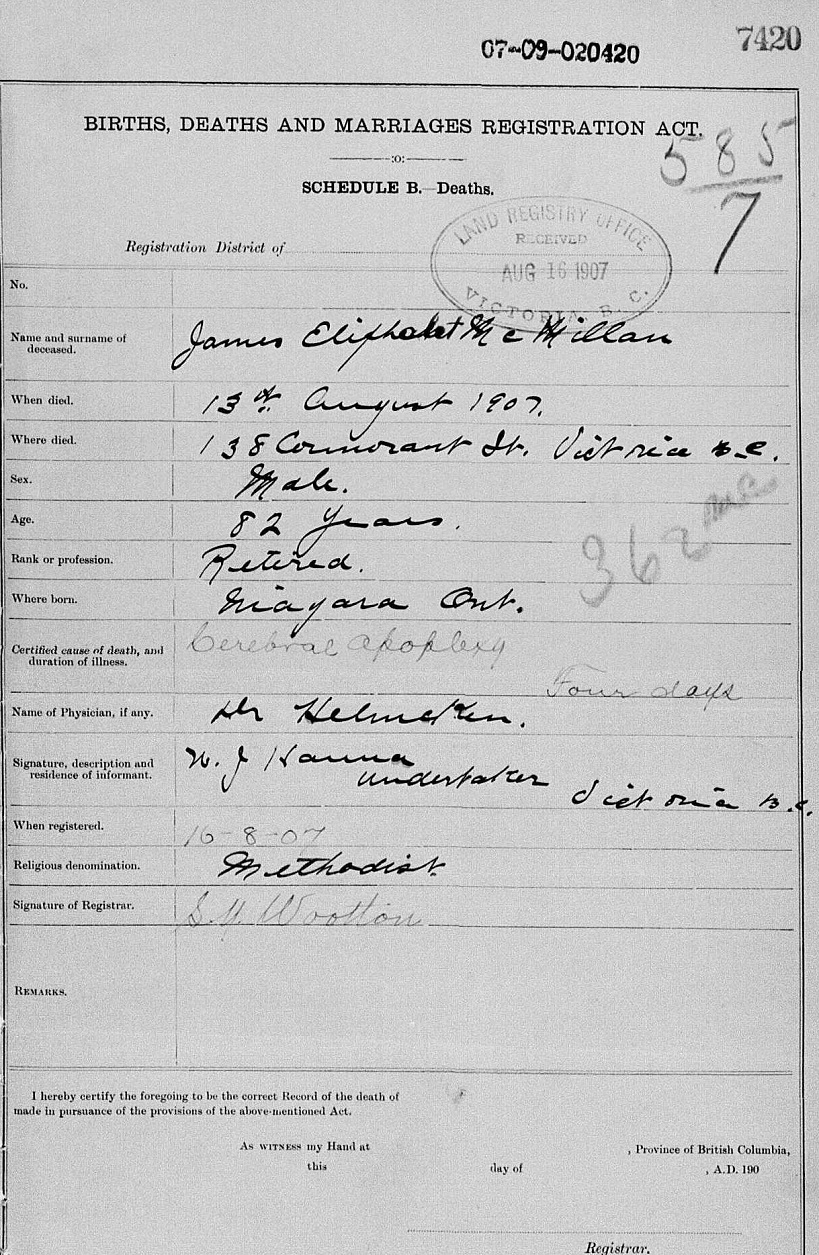 07-09-020420
7420
BIRTHS, DEATHS AND MARRIAGES REGISTRATION ACT.
:o:
585
7
SCHEDULE B.—Deaths.
LAND REGISTRY OFFICE
RECEIVED
AUG 16 1907
VICTORIA, B. C.
Registration District of
No.
Name and surname of deceased. James Eliphalet McMillan
When died. 13th August 1907.
Where died. 138 Cormorant St. Victoria B.C.
Sex. Male.
Age. 82 Years.
362
Rank or profession. Retired.
Where born. Niagara Ont.
Certified cause of death, and duration of illness. Cerebral apoplexy
Four days
Name of Physician, if any. Dr Helmcken.
Signature, description and residence of informant. W. J Hanna
undertaker
Victoria B.C.
When registered. 16-8-07
Religious denomination. Methodist
Signature of Registrar. S.Y. Wootton
REMARKS.
I hereby certify the foregoing to be the correct Record of the death of
made in pursuance of the provisions of the above-mentioned Act.
AS WITNESS my Hand at , Province of British Columbia,
this day of , A.D. 190
Registrar.